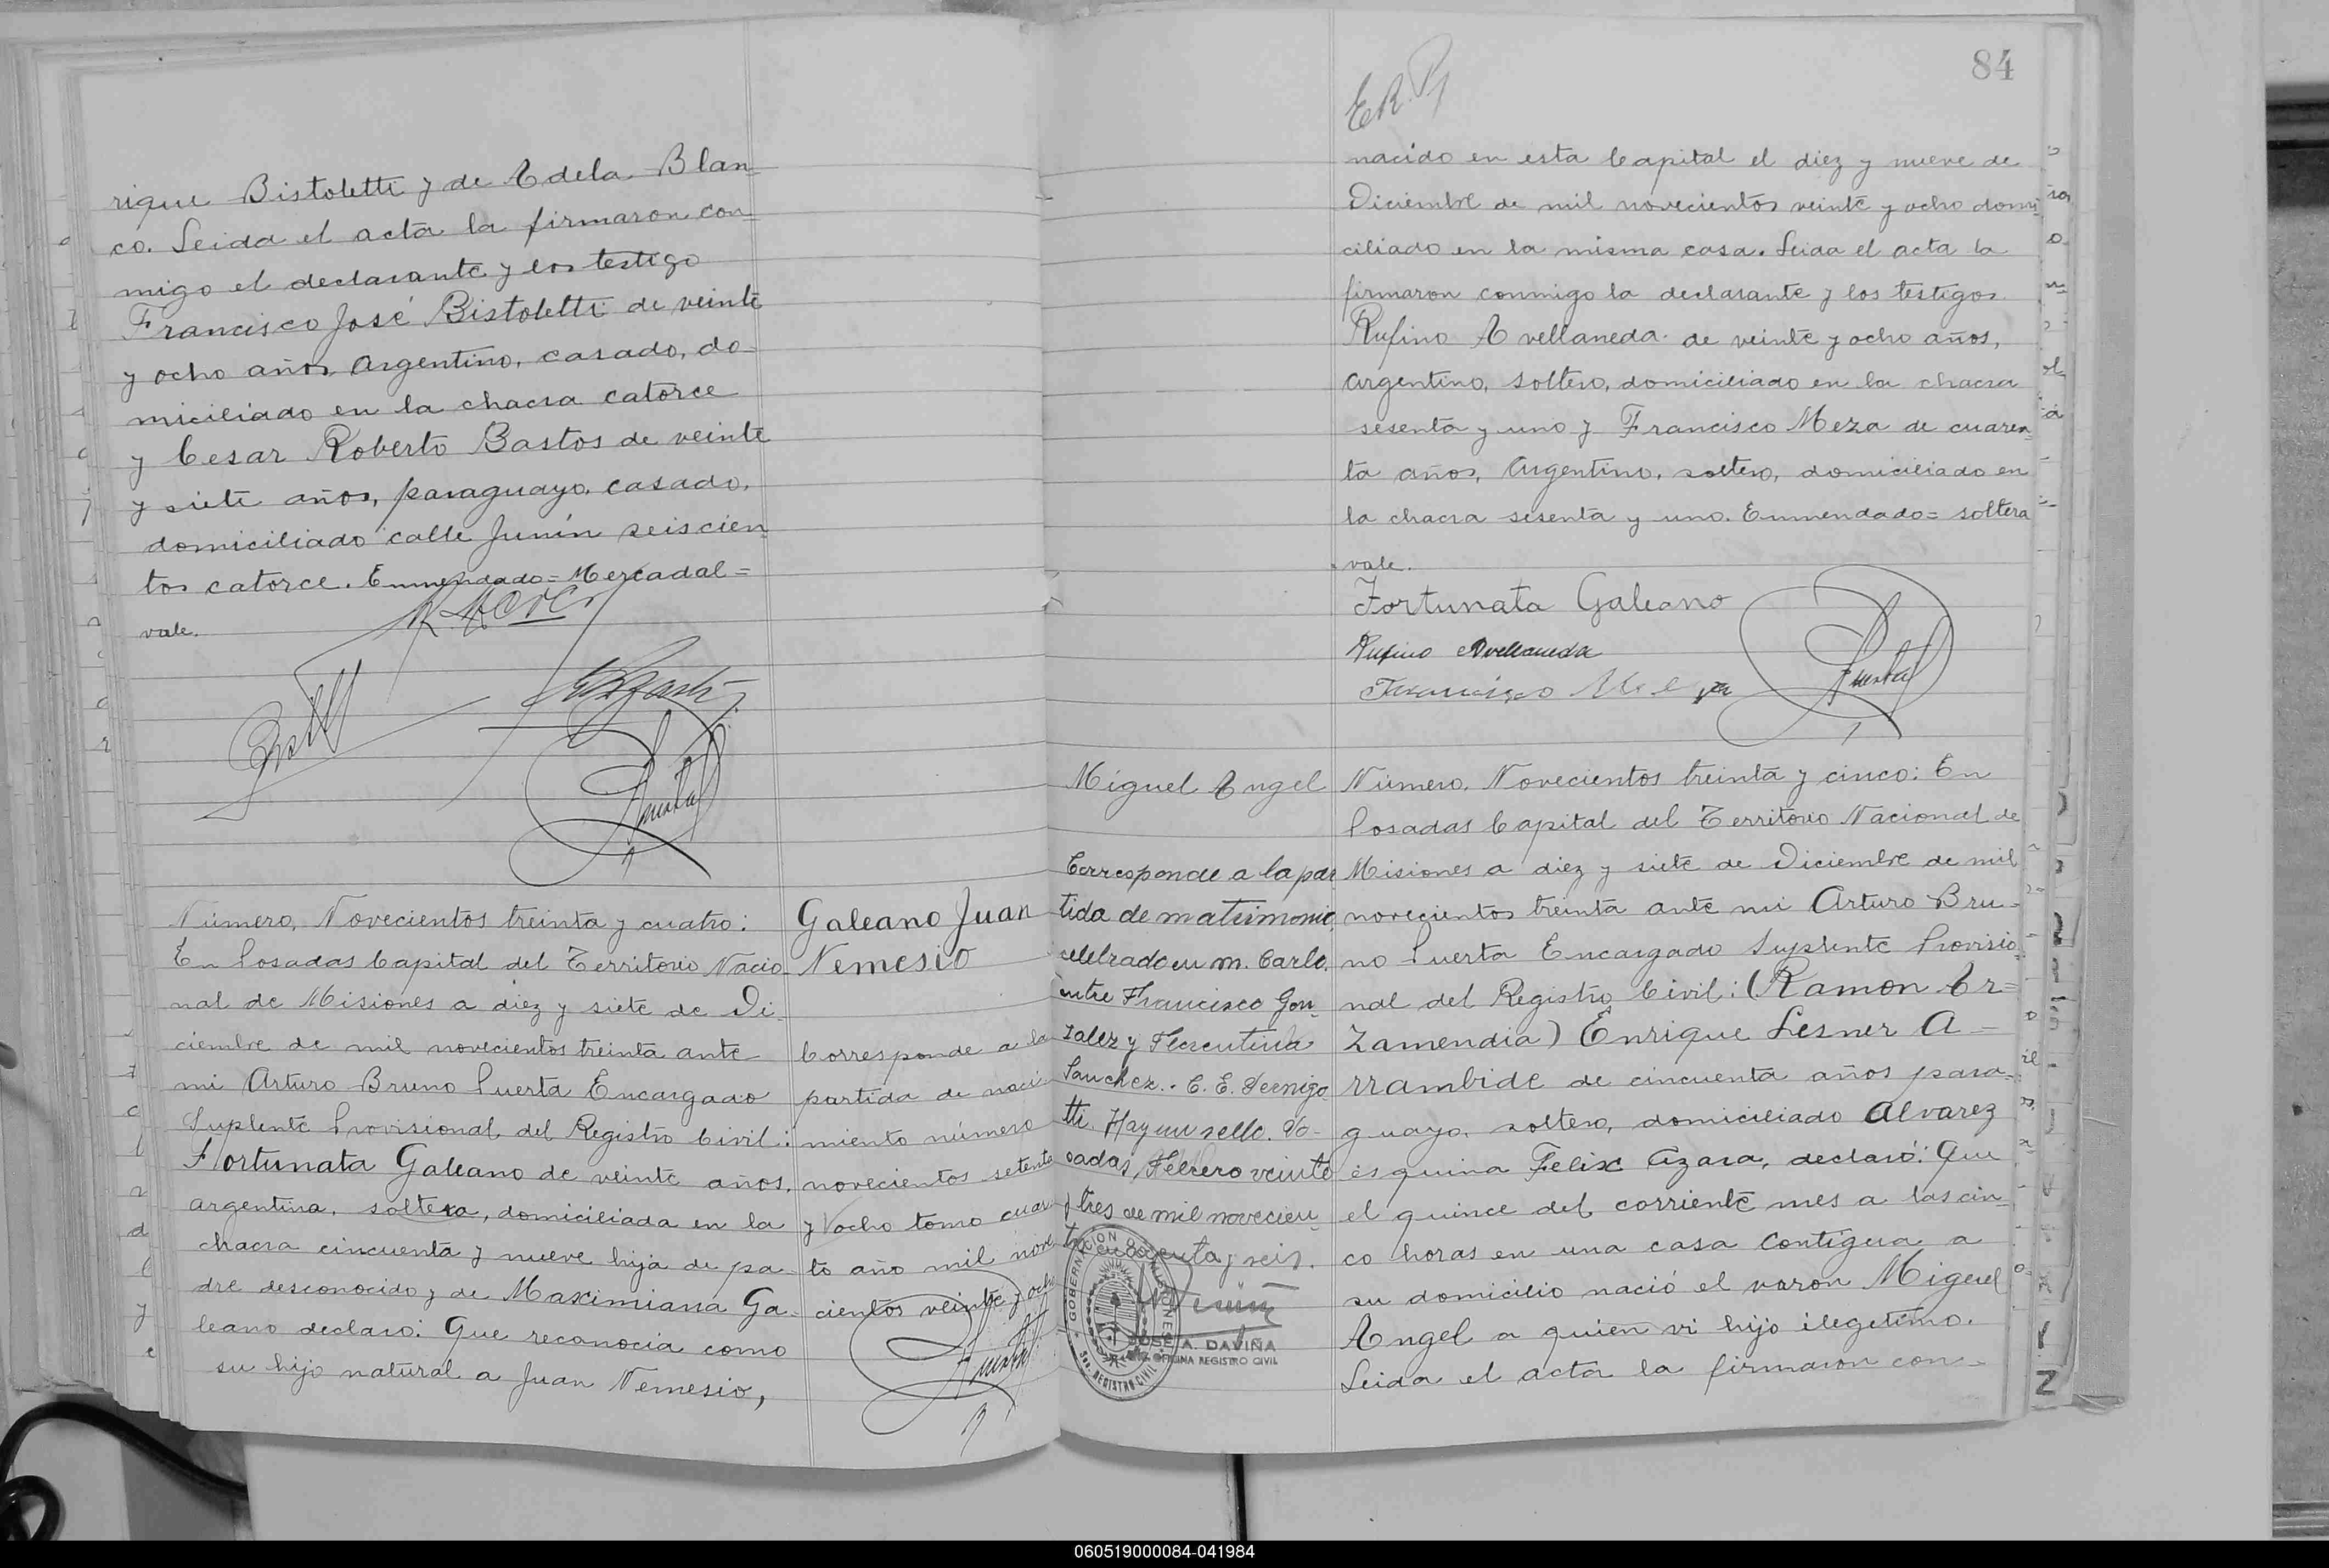 rique Bistoletti y de Adela Blan=
co. Leida el acta la firmaron con=
migo el declarante y los testigo
Francisco José Bistoletti de veinte
y ocho años, Argentino, casado, do-
miciliado en la chacra catorce
y Cesar Roberto Bastos de veinte
y siete años, paraguayo, casado,
domiciliado calle Junín seiscien
tos catorce. Enmendado= Mercadal=
vale.
Número, Novecientos treinta y cuatro:
En Posadas Capital del Territorio Nacio-
nal de Misiones a diez y siete de Di-
ciembre de mil novecientos treinta ante
mi Arturo Bruno Puerta Encargado
Suplente Provisional del Registro Civil:
Fortunata Galeano de veinte años,
argentina, soltera, domiciliada en la
chacra cincuenta y nueve hija de pa-
dre desconocido y de Maximiana Ga-
leano declaró: Que reconocia como
su hijo natural a Juan Nemesio,
Galeano Juan
Nemesio
Corresponde a la
partida de naci-
miento número
novecientos setenta
y ocho tomo cuar
to año mil nove
cientos veinte y ocho
84
nacido en esta Capital el diez y nueve de
Diciembre de mil novecientos veinte y ocho domi-
ciliado en la misma casa. Leida el acta la
firmaron conmigo la declarante y los testigos
Rufino Avellaneda de veinte y ocho años,
Argentino, soltero, domiciliado en la chacra
sesenta y uno y Francisco Meza de cuaren-
ta años, Argentino, soltero, domiciliado en
la chacra sesenta y uno. Enmendado= soltera
vale.
Fortunata Galeano
Rufino Avellaneda
Francisco Meza
Miguel Angel
Corresponde a la par
tida de matrimonio,
celebrado en M. Carlo,
entre Francisco Gon-
zalez y Florentina
Sanchez. C. E. Pernigo
tti. Hay un sello. Po-
sadas, Febrero veinte
y tres de mil novecien-
tos cuarenta y seis.
JOSE A. DAVIÑA
OFICINA REGISTRO CIVIL
Número, Novecientos treinta y cinco: En
Posadas Capital del Territorio Nacional de
Misiones a diez y siete de Diciembre de mil
novecientos treinta ante mi Arturo Bru-
no Puerta Encargado Suplente Provisio-
nal del Registro Civil: (Ramon Ar=
zamendia) Enrique Lesner A=
rrambide de cincuenta años para-
guayo, soltero, domiciliado Alvarez
esquina Felix Azara, declaró: Que
el quince del corriente mes a las cin-
co horas en una casa contigua a
su domicilio nació el varon Miguel
Angel a quien vi hijo ilegetimo.
Leida el acta la firmaron con-
060519000084-041984